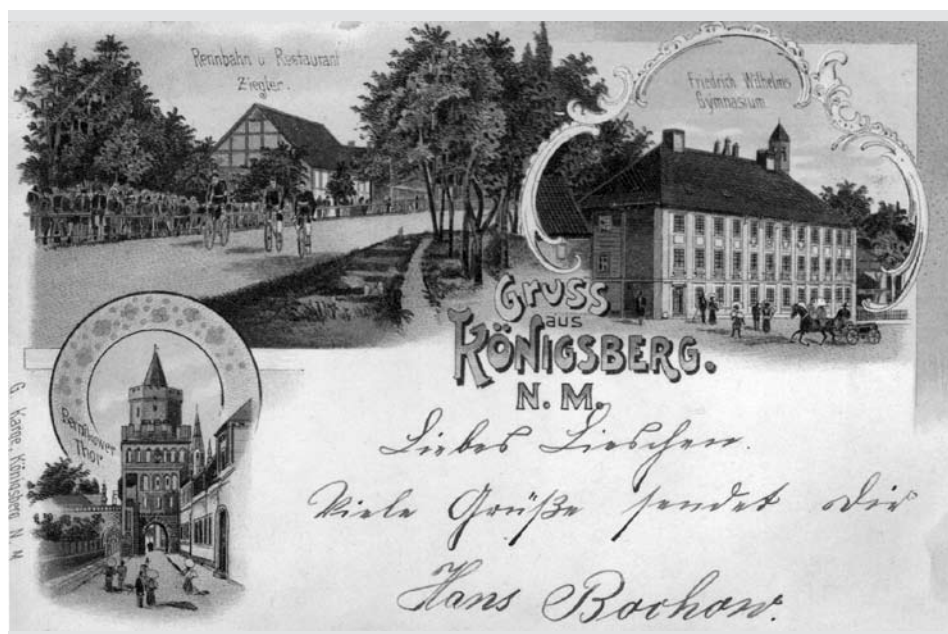 Rennbahn u Restaurant
Ziegler.
Friedrich Wilhelms
Gymnasium
Gruss
aus
Königsberg.
N. M.
Bernikower
Thor
G. Karge, Königsberg N. M.
Liebes Lieschen.
Viele Grüße sendet Dir
Hans Bochow.